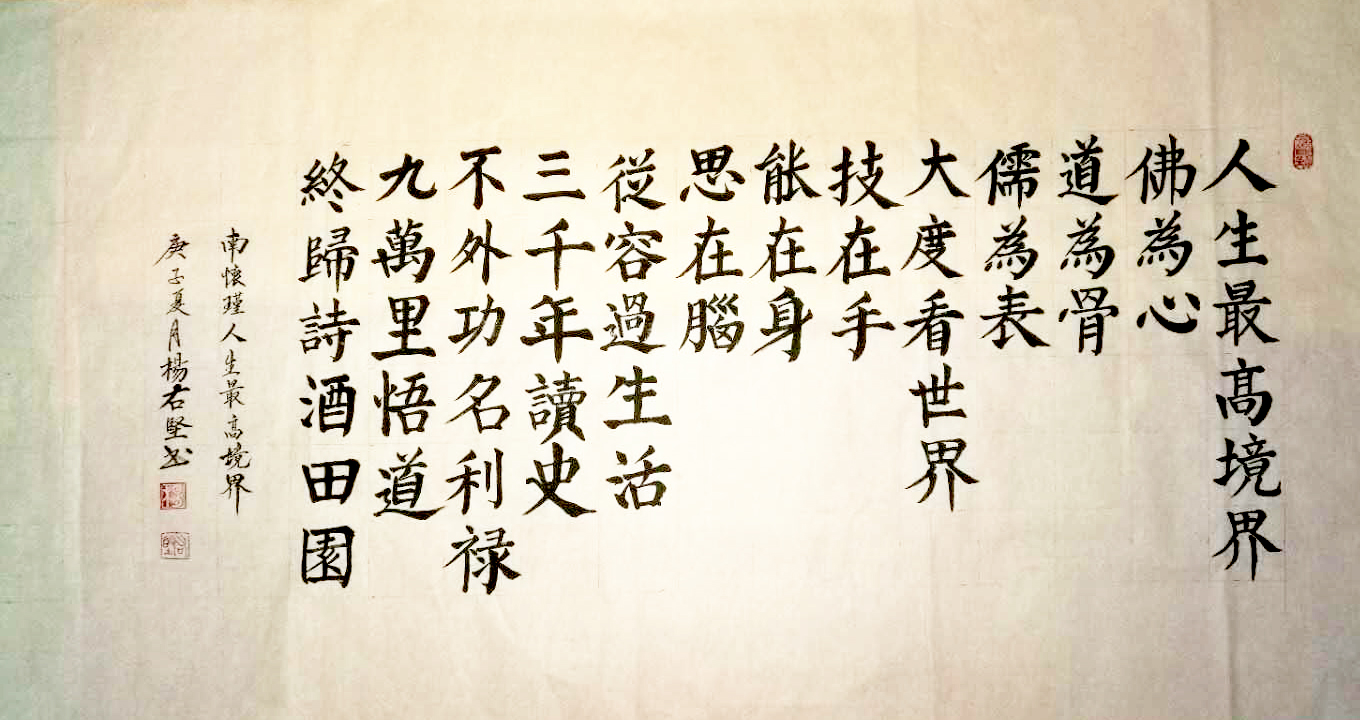 人生最高境界
佛為心
道為骨
儒為表
大度看世界
技在手
能在身
思在腦
從容過生活
三千年讀史
不外功名利祿
九萬里悟道
終歸詩酒田園
南懷瑾人生最高境界
庚子夏月楊右堅书